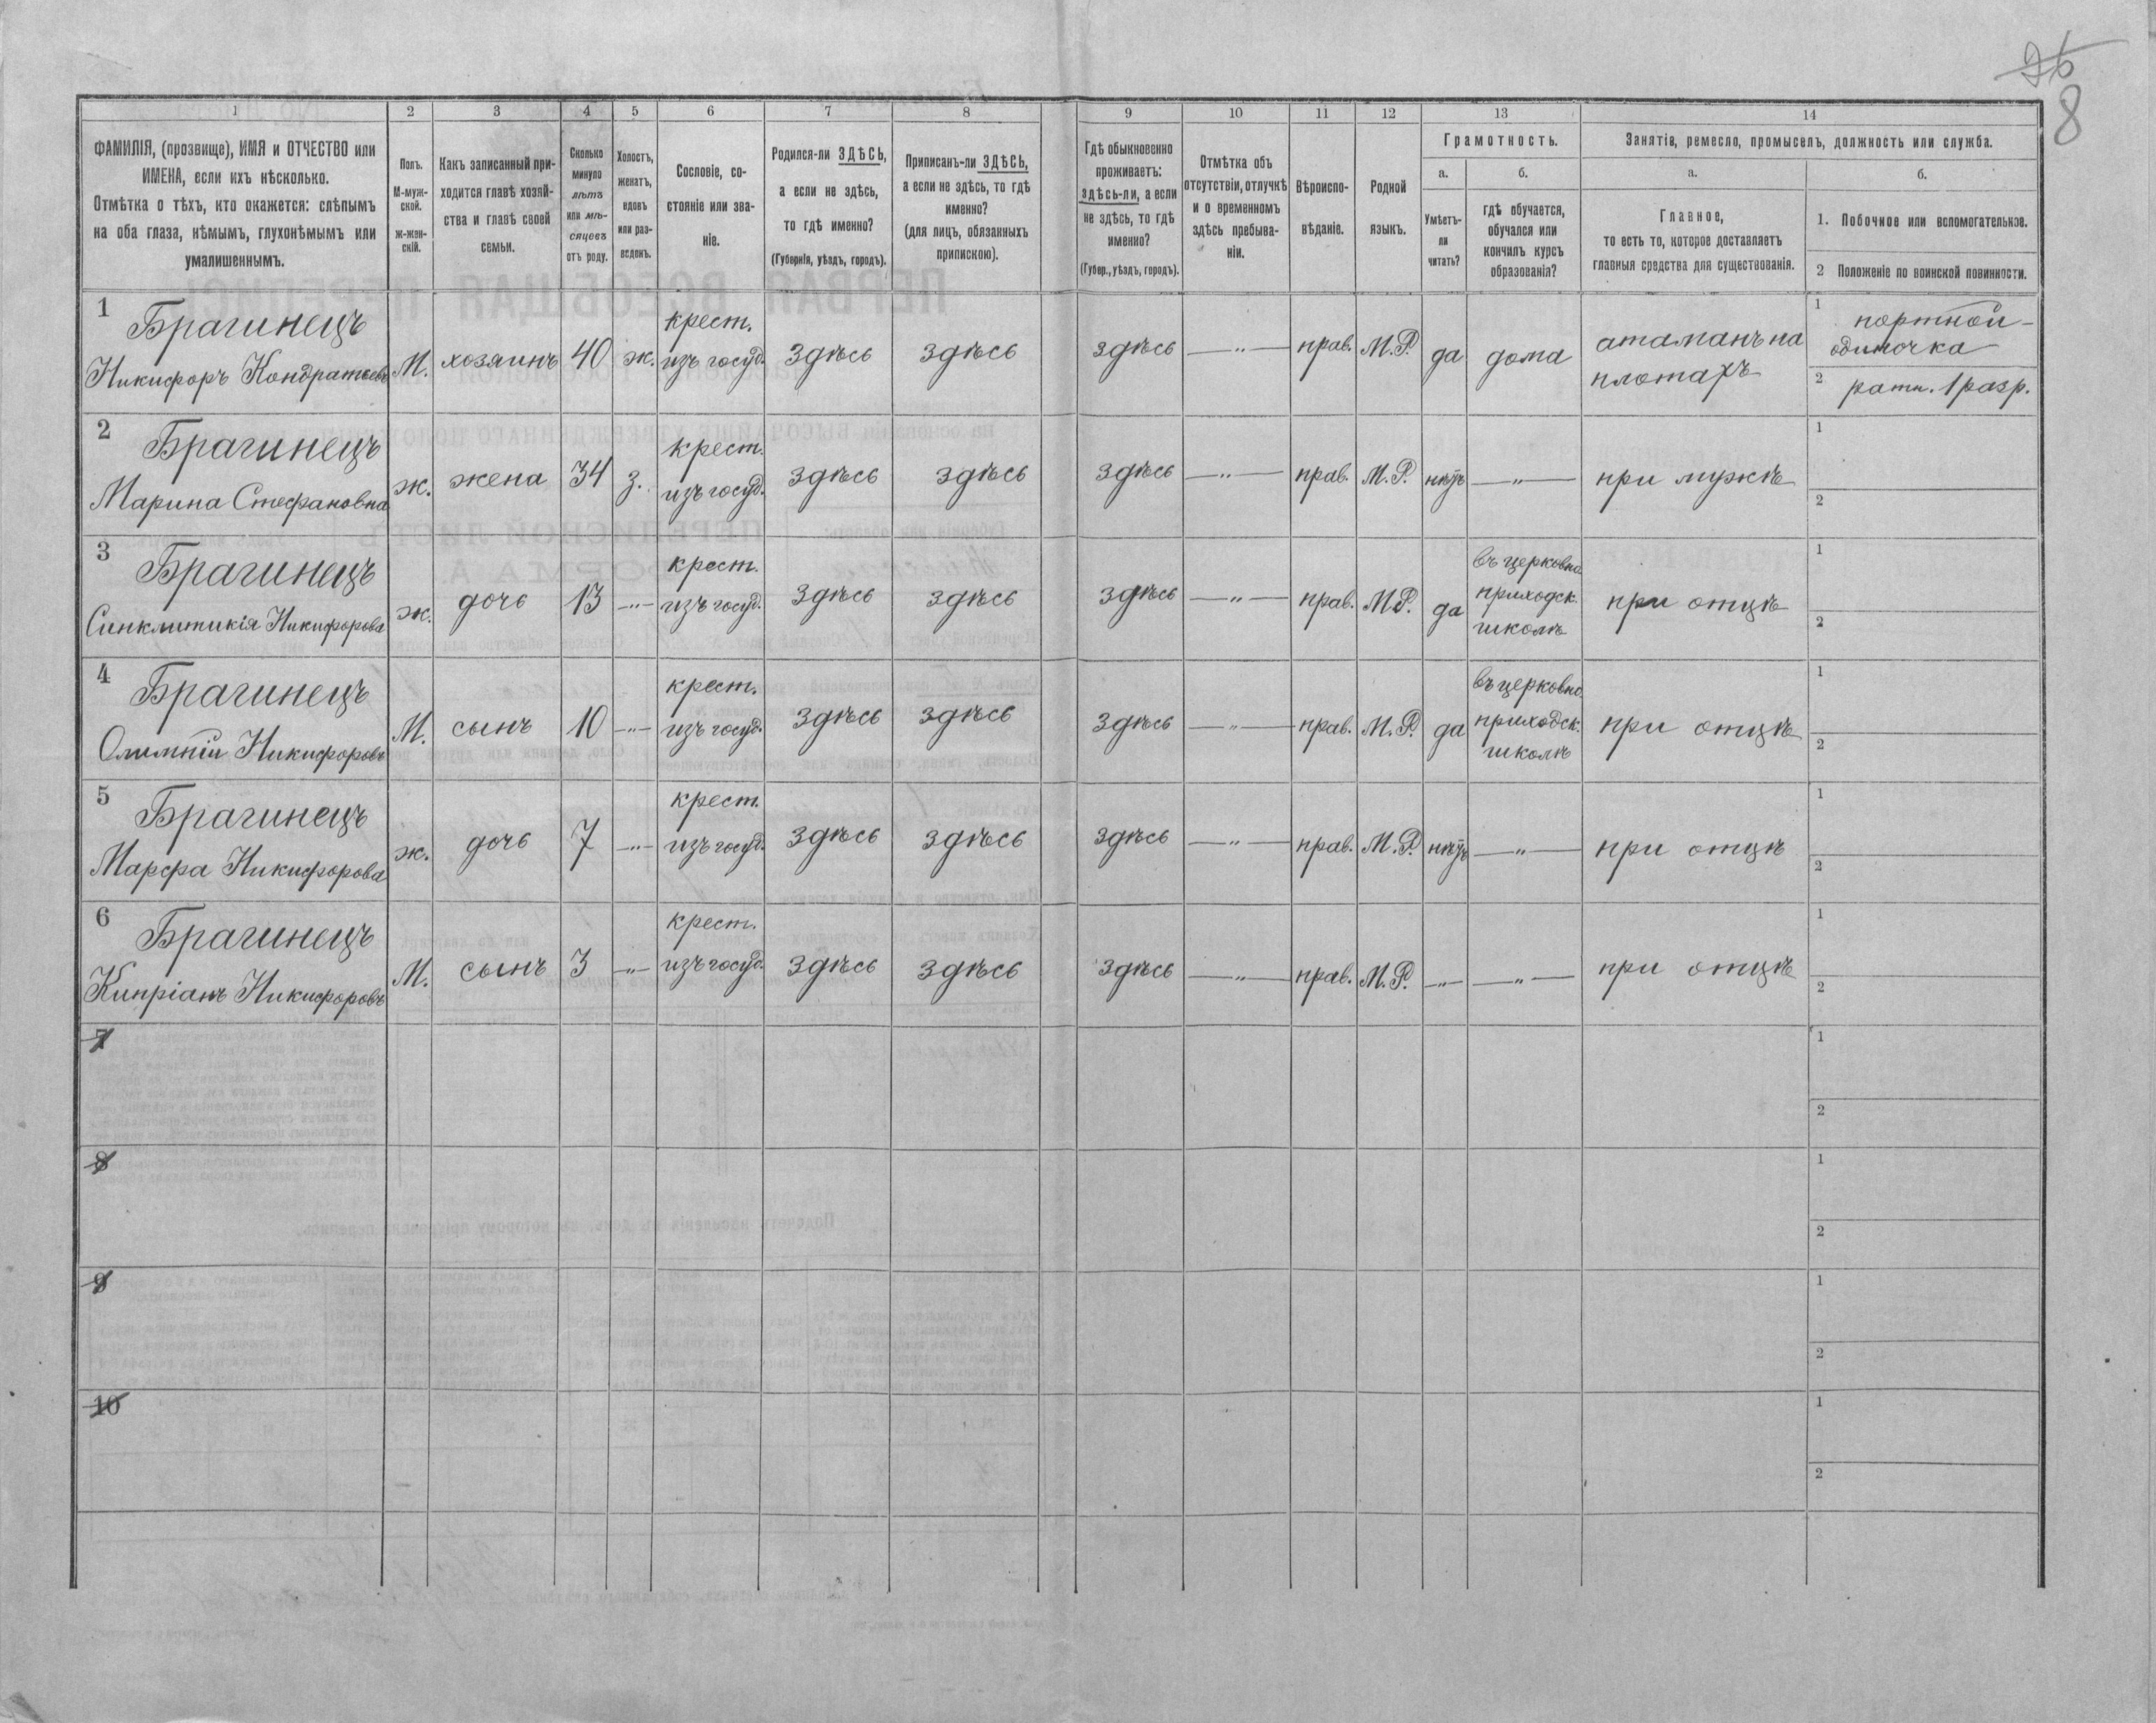 26
8
1 2 3 4 5 6 7 8 9 10 11 12 13 14
ФАМИЛІЯ, (прозвище), ИМЯ и ОТЧЕСТВО или
ИМЕНА, если ихъ нѣсколько.
Отмѣтка о тѣхъ, кто окажется: слѣпымъ
на оба глаза, нѣмымъ, глухонѣмымъ или
умалишеннымъ.
Полъ.
М-муж-
ской.
ж-жен-
скій.
Какъ записанный при-
ходится главѣ хозяй-
ства и главѣ своей
семьи.
Сколько
минуло
лѣтъ
или мѣ-
сяцевъ
отъ роду.
Холостъ,
женатъ,
вдовъ
или раз-
веденъ.
Сословіе, со-
стояніе или зва-
ніе.
Родился-ли ЗДѢСЬ,
а если не здѣсь,
то гдѣ именно?
(Губернія, уѣздъ, городъ).
Приписанъ-ли ЗДѢСЬ,
а если не здѣсь, то гдѣ
именно?
(для лицъ, обязанныхъ
припискою).
Гдѣ обыкновенно
проживаетъ:
здѣсь-ли, а если
не здѣсь, то гдѣ
именно?
(Губер., уѣздъ, городъ).
Отмѣтка объ
отсутствіи, отлучкѣ
и о временномъ
здѣсь пребыва-
ніи.
Вѣроиспо-
вѣданіе.
Родной
языкъ.
Грамотность.
а.
Умѣетъ-
ли
читать?
б.
гдѣ обучается,
обучался или
кончилъ курсъ
образованія?
Занятія, ремесло, промыселъ, должность или служба.
а.
Главное,
то есть то, которое доставляетъ
главныя средства для существованія.
б.
1. Побочное или вспомогательное.
2 Положеніе по воинской повинности.
1
Брагинецъ
Никифоръ Кондратьевъ
М.
хозяинъ
40
ж.
крест.
изъ госуд.
здѣсь
здѣсь
здѣсь
—"—
прав.
М.Р.
да
дома
атаманъ на
плотахъ
1 портной-
одиночка
2 ратн. 1 разр.
2
Брагинецъ
Марина Стефановна
ж.
жена
34
з.
крест.
изъ госуд.
здѣсь
здѣсь
здѣсь
—"—
прав.
М.Р.
нѣтъ
—"—
при мужѣ
1
2
3
Брагинецъ
Синклитикія Никифорова
ж.
дочь
13
—"—
крест.
изъ госуд.
здѣсь
здѣсь
здѣсь
—"—
прав.
М.Р.
да
въ церковно
приходск.
школѣ
при отцѣ
1
2
4
Брагинецъ
Олимпій Никифоровъ
М.
сынъ
10
—"—
крест.
изъ госуд.
здѣсь
здѣсь
здѣсь
—"—
прав.
М.Р.
да
въ церковно
приходск.
школѣ
при отцѣ
1
2
5
Брагинецъ
Марфа Никифорова
ж.
дочь
7
—"—
крест.
изъ госуд.
здѣсь
здѣсь
здѣсь
—"—
прав.
М.Р.
нѣтъ
—"—
при отцѣ
1
2
6
Брагинецъ
Кипріанъ Никифоровъ
М.
сынъ
3
—"—
крест.
изъ госуд.
здѣсь
здѣсь
здѣсь
—"—
прав.
М.Р.
—"—
—"—
при отцѣ
1
2
7
1
2
8
1
2
9
1
2
10
1
2